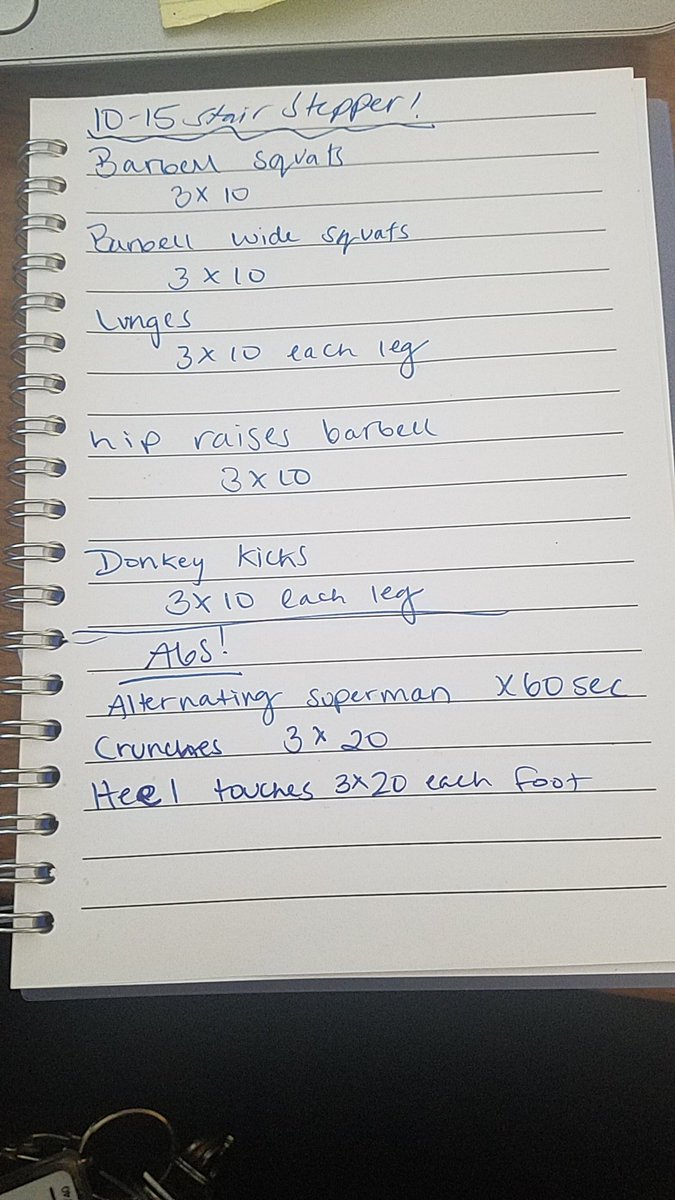 10-15 stair stepper!
Barbell squats
3 x 10
Barbell wide squats
3 x 10
Lunges
3 x 10 each leg
hip raises barbell
3 x 10
Donkey kicks
3 x 10 each leg
Abs!
Alternating superman x 60 sec
Crunches 3 x 20
Heel touches 3x20 each foot